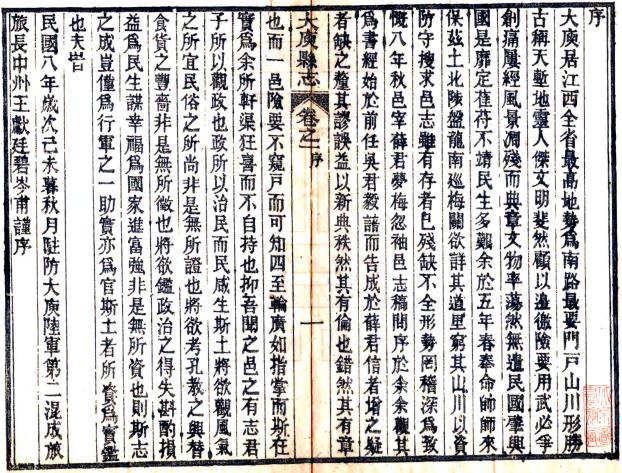 序
大庾居江西全省最高地勢爲南路最要門戸山川形勝
古稱天塹地靈人傑文明斐然顧以邊徼險要用武必爭
創痛屢經風景凋殘而典章文物率蕩然無遺民國肇興
國是靡定萑苻不靖民生多艱余於五年春奉命師師來
保茲土北陟盤龍南巡梅關欲詳其道里窮其山川以資
防守搜求邑志雖有存者已殘缺不全形勢罔稽深爲致
慨八年秋邑宰薛君夢梅忽袖邑志稿問序於余余觀其
爲書經始於前任吳君穀諳而告成於薛君信者增之疑
者缺之釐其謬誤益以新典秩然其有倫也錯然其有章
大庾縣志 卷之一 序 一
也而一邑險要不窺戸而可知四至輪廣如指掌而斯在
寶爲余所軒渠狂喜而不自持也抑吾聞之邑之有志君
子所以觀政也政所以治民而民咸生斯土將欲觀風氣
之所宜民俗之所尚非是無所證也將欲考孔教之興替
食貨之豐嗇非是無所徵也將欲鑑政治之得失斟酌損
益爲民生謀幸福爲國家進富強非是無所資也則斯志
之成豈僅爲行軍之一助實亦爲官斯土者所資爲寶鑑
也夫峕
民國八年歲次己未暮秋月駐防大庾陸軍第二混成旅
旅長中州王獻廷碧岑甫謹序